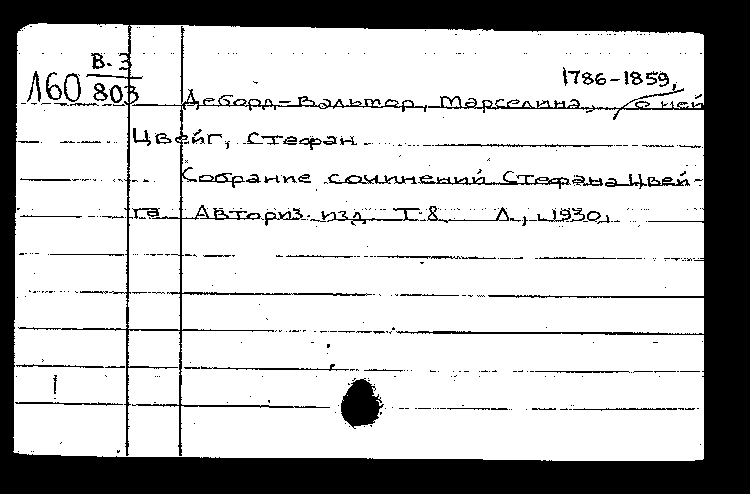 В-3
160 803
1786-1859,
Деборд-Вальмор, Марселина, о ней
Цвейг, Стефан.
Собрание сочинений Стефана Цвей-
га. Авториз. изд. Т. 8. Л., 1930.